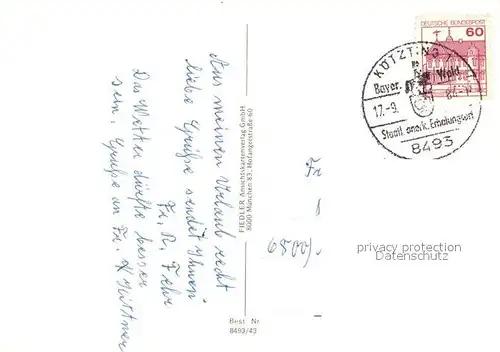 Aus meinem Urlaub recht
liebe Grüße sendet Ihnen
Fr. R. Fehr
Das Wetter dürfte besser
sein. Grüße an Fr.
FIEDLER Ansichtskartenverlag GmbH
8000 München 83, Hofangerstraße 60
Best Nr
8493/43
DEUTSCHE BUNDESPOST
60
KÖTZTING
Bayer. Wald
17.-9.
Staatl. anerk. Erholungsort
8493
Fr
6800/.
privacy protection
Datenschutz